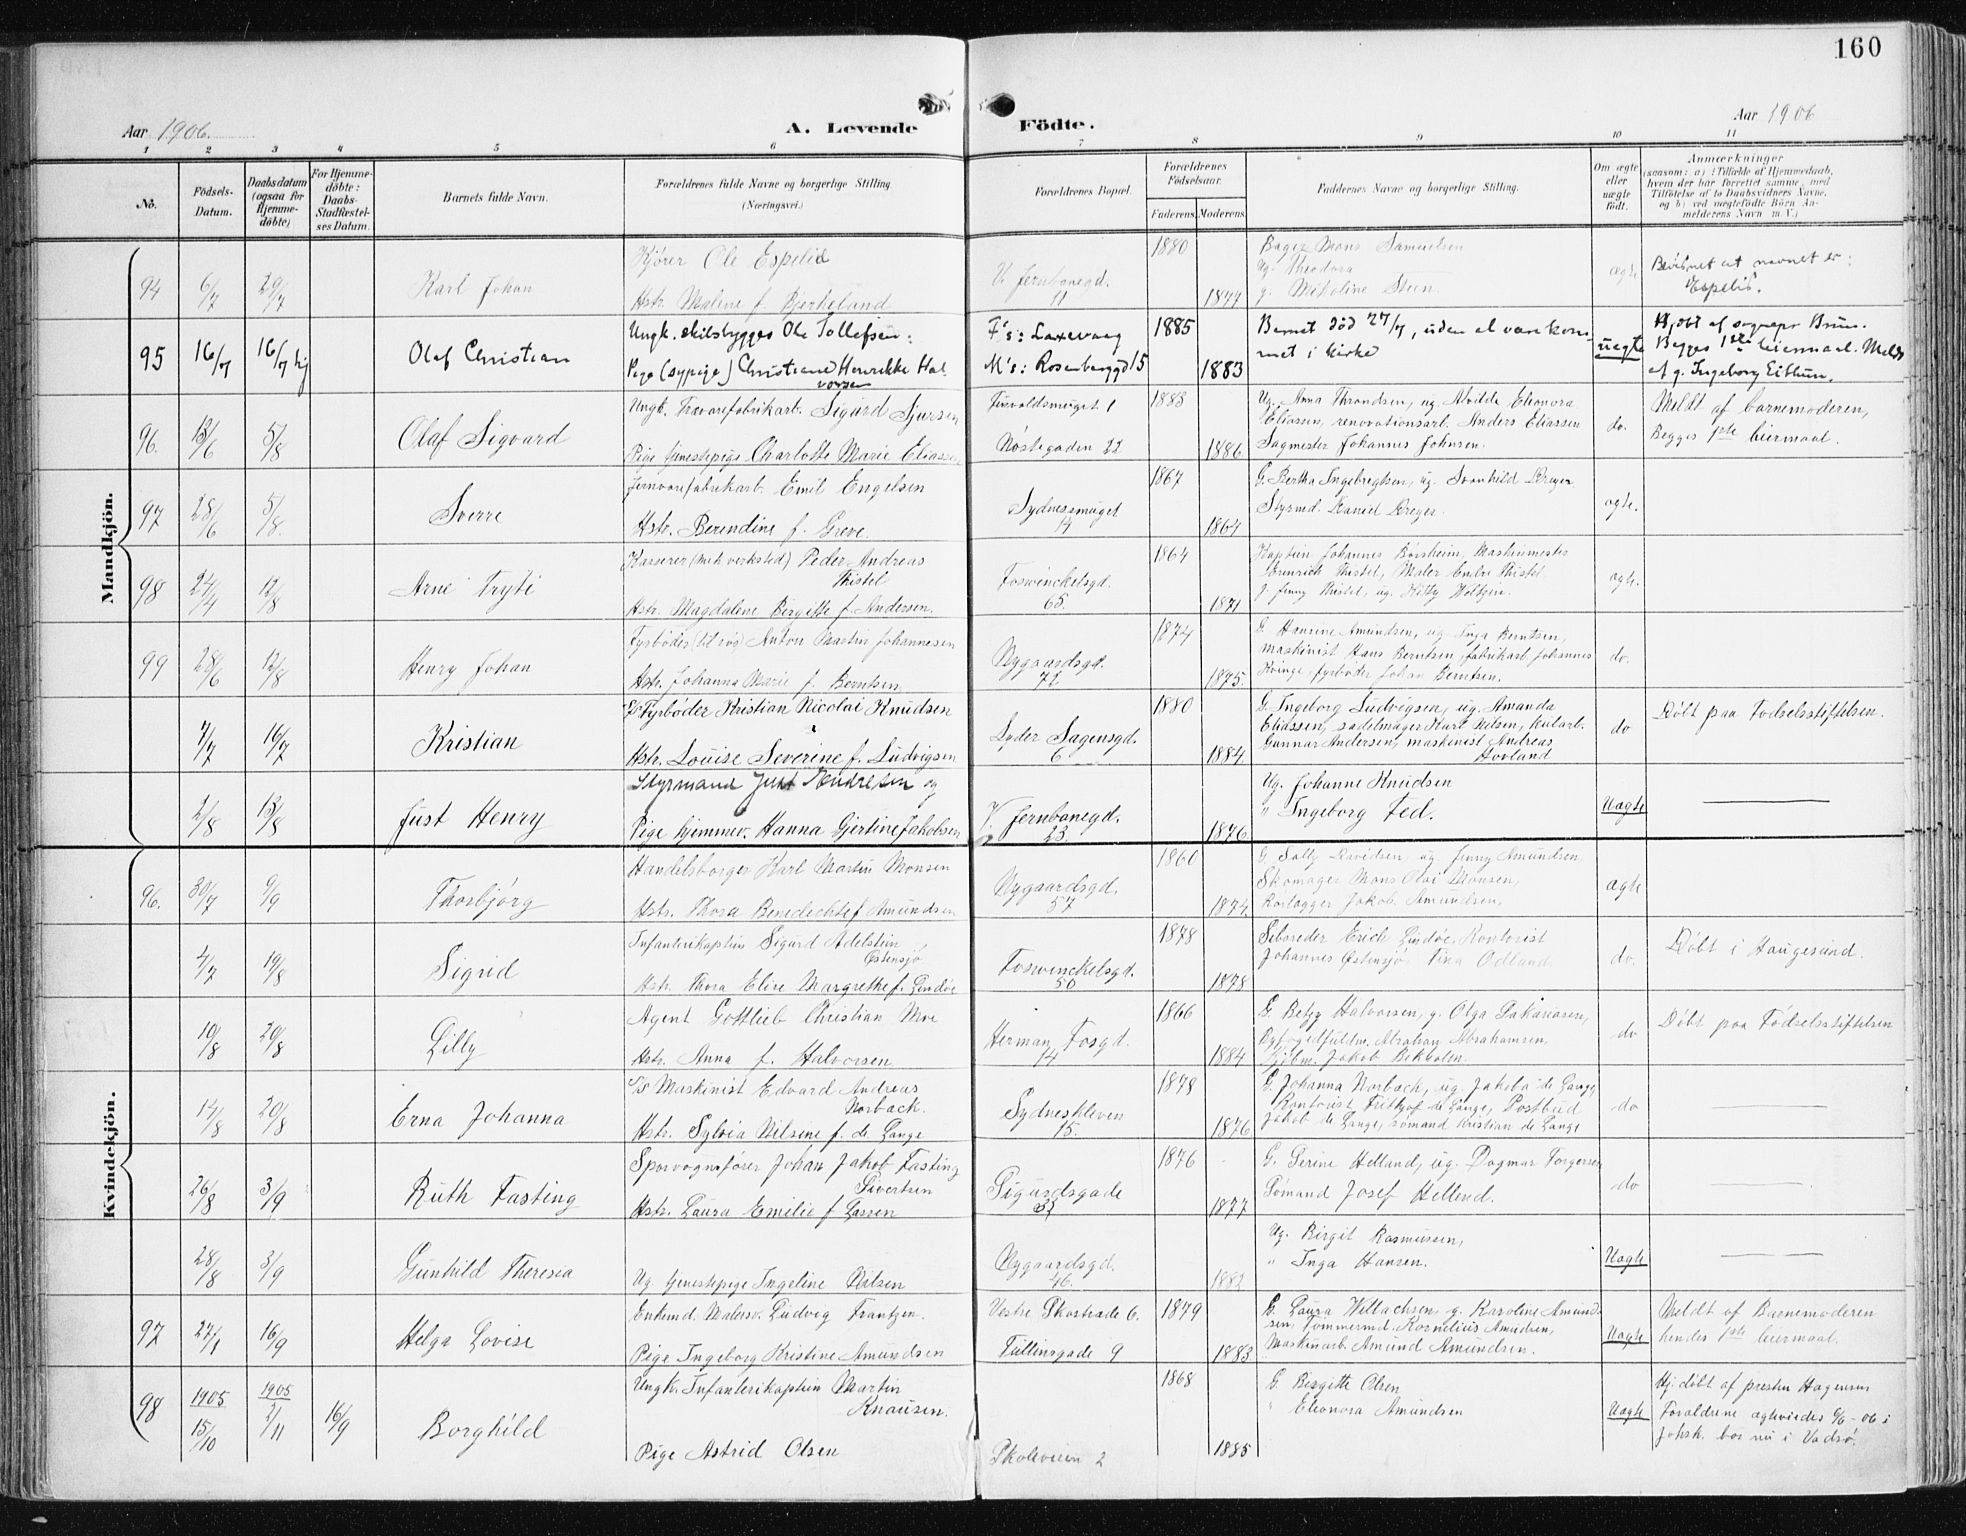 160
Aar 1906.
A. Levende Födte.
Aar 1906
1 2 3 4 5 6 7 8 9 10 11
No.
Födsels-Datum.
Daabsdatum (ogsaa for Hjemmedöbte)
For Hjemmedöbte: Daabs-Stadfæstelses Datum.
Barnets fulde Navn.
Forældrenes fulde Navne og borgerlige Stilling.
(Næringsvei.)
Forældrenes Bopæl.
Forældrenes Födselsaar.
Faderens. Moderens.
Faddernes Navne og borgerlige Stilling.
Om ægte eller uægte födt.
Anmærkninger
(saasom: a) i Tilfælde af Hjemmedaab, hvem der har forrettet samme, med Tilföielse af to Daabsvidners Navne, og b) ved uægtefödte Börn Anmelderens Navn m. V.)
Mandkjön.
94 6/7 29/7 Karl Johan
Kjører Ole Espelid
Hstr. Malene f. Bjerkeland
V. Jernbanegd. 11
1880 1877
Bager Mons Samuelsen
Ug. Theodora
g. Nikoline Steen.
ægte
Bevisnet at navnet er:
Espelid.
95 16/7 16/7 hj Olaf Christian
Ungk. skibsbygger Ole Tollefsen:
Pige (sypige) Christiane Henrikke Halvorsen
F's: Laxevaag
M's: Rosenberggd 15
1885 1883
Barnet død 27/7, uden at være kommet i kirke
uægte
Hj.døbt af sognepr Bruun.
Begges 1ste leiermaal. Meldt
af g. Ingeborg Eithun.
96. 13/6 5/8 Olaf Sigvard
Ungk. Trævarefabrikarb. Sigurd Sjursen
Pige tjenestepige Charlotte Marie Eliassen
1
Nøstegaden 22
1883 1886
Ug. Anna Throndsen, ug. Alvilde Eleonora
Eliassen, renovationsarb. Anders Eliassen
Sagmester Johannes Johnsen.
do.
Meldt af barnemoderen,
Begges 1ste leiermaal.
97 28/6 5/8. Sverre
Jernvarefabrikarb. Emil Engelsen
Hstr. Berendine f. Greve.
Sydnessmuget 14
1867 1864
G. Bertha Ingebregtsen, ug. Svanhild Dreyer
Styrmd. Daniel Dreyer.
ægte.
98 24/4 12/8 Arne Tryti
Kasserer (mek verksted) Peder Andreas
Thistel
Hstr. Magdalene Birgitte f. Andersen.
Fosswinckelsgd. 65.
1864 1871
Kaptein Johannes Børsheim, Maskinmester
Thistel, Maler Endre Thistel
g. Jenny Thistel, ug. Kitty
ægte.
99 28/6 12/8 Henry Johan
Fyrbøder (til søs) Anton Martin Johannesen
Hstr. Johanna Marie f. Berntsen.
Nygaardsgd. 72
1874 1875.
G. Hansine Amundsen, ug Inga Berntsen,
maskinist Hans Berntsen, fabrikarb. Johannes
Kvinge, fyrbøder Johan Berntsen.
do.
7/7 16/7 Kristian
Fyrbøder Kristian Nicolai Knudsen
Hstr. Louise Severine f. Ludvigsen
Lyder Sagensgd. 6
1880 1884.
G. Ingeborg Ludvigsen, ug. Amanda
Eliassen, sadelmager Karl Nilsen, kularb.
Gunnar Andersen, maskinist Andreas
Hovland
do
Døbt paa Fødselsstiftelsen.
2/8 13/8 Just Henry
Styrmand Just Andresen og
Pige hjemmev. Hanna Gjertine Jakobsen
V. Jernbanegd. 23.
1876
Ug. Johanne Knudsen
" Ingeborg Fed.
Uægte
Kvindekjön.
96. 30/7 9/9 Thorbjörg
Handelsborger Karl Martin Monsen
Hstr. Thora Benedichte f Amundsen
Nygaardsgd. 57
1860 1874
G Sally Davidsen, ug. Jenny Amundsen
Skomager Mons Olai Monsen,
Rørlægger Jakob Amundsen,
ægte
4/7 19/8 Sigrid
Infanterikaptein Sigurd Adelstein
Østensjö
Hstr. Thora Elise Margrethe f. Lindøe
Fosswinckelsgd. 50
1878 1878
Skibsreder Erich Lindøe, Kontorist
Johannes Østensjø. Tina Odland
do.
Døbt i Haugesund.
10/8 20/8 Lilly
Agent Gottlieb Christian Moe
Hstr. Anna f. Halvorsen.
Herman Fosgd. 14
1866 1884
G. Betzy Halvorsen, g. Olga Sakariasen,
Byfogedfuldm. Abraham Abrahamsen,
Kjøbm. Jakob Bekholen.
do
Døbt paa Fødselsstiftelsen
14/8 20/8 Erna Johanna
Maskinist Edvard Andreas
Norback.
Hstr. Sylvia Nilsine f. de Lange
Sydneskleven 15.
1878 1876
G. Johanna Norback, ug. Jakoba de Lange,
Kontorist Fritjof de Lange, Postbud
Jakob de Lange, sømand Kristian de Lange
do
26/8 3/9 Ruth Fasting
Sporvognsfører Johan Jakob Fasting
Sivertsen
Hstr. Laura Emilie f Larsen
Sigurdsgade
1876 1877
G. Serine Helland, ug. Dagmar Torgersen
Sømand Josef Hellend.
do
28/8 3/9 Gunhild Theresia
Ug tjenestepige Ingeline Nilsen
Nygaardsgd. 46.
1882
Ug. Birgit Rasmussen,
" Inga Hansen.
Uægte
97 27/1 16/9 Helga Lovise
Enkemd. Malersv. Ludvig Frantzen.
Pige Ingeborg Kristine Amundsen
Vestre Skostræde 6.
Tullinsgade 9
1879 1883
G. Laura Willachsen, g. Karoline Amundsen, Tømmermd. Kornelius Amundsen,
Maskinarb. Amund Amundsen.
Uægte
Meldt af Barnemoderen
hendes 1ste leiermaal.
98 1905 15/10 1905 2/11 16/9 Borghild
Ungk. Infanterikaptein Martin
Knausen.
Pige Astrid Olsen
Skoleveien 2
1868 1885
G. Birgitte Olsen
" Eleonora Amundsen
Uægte
Hj. døbt af presten Hagensen
Forældrene ægteviedes 6/6 - 06 i
Johsk. bor nu i Vadsø.